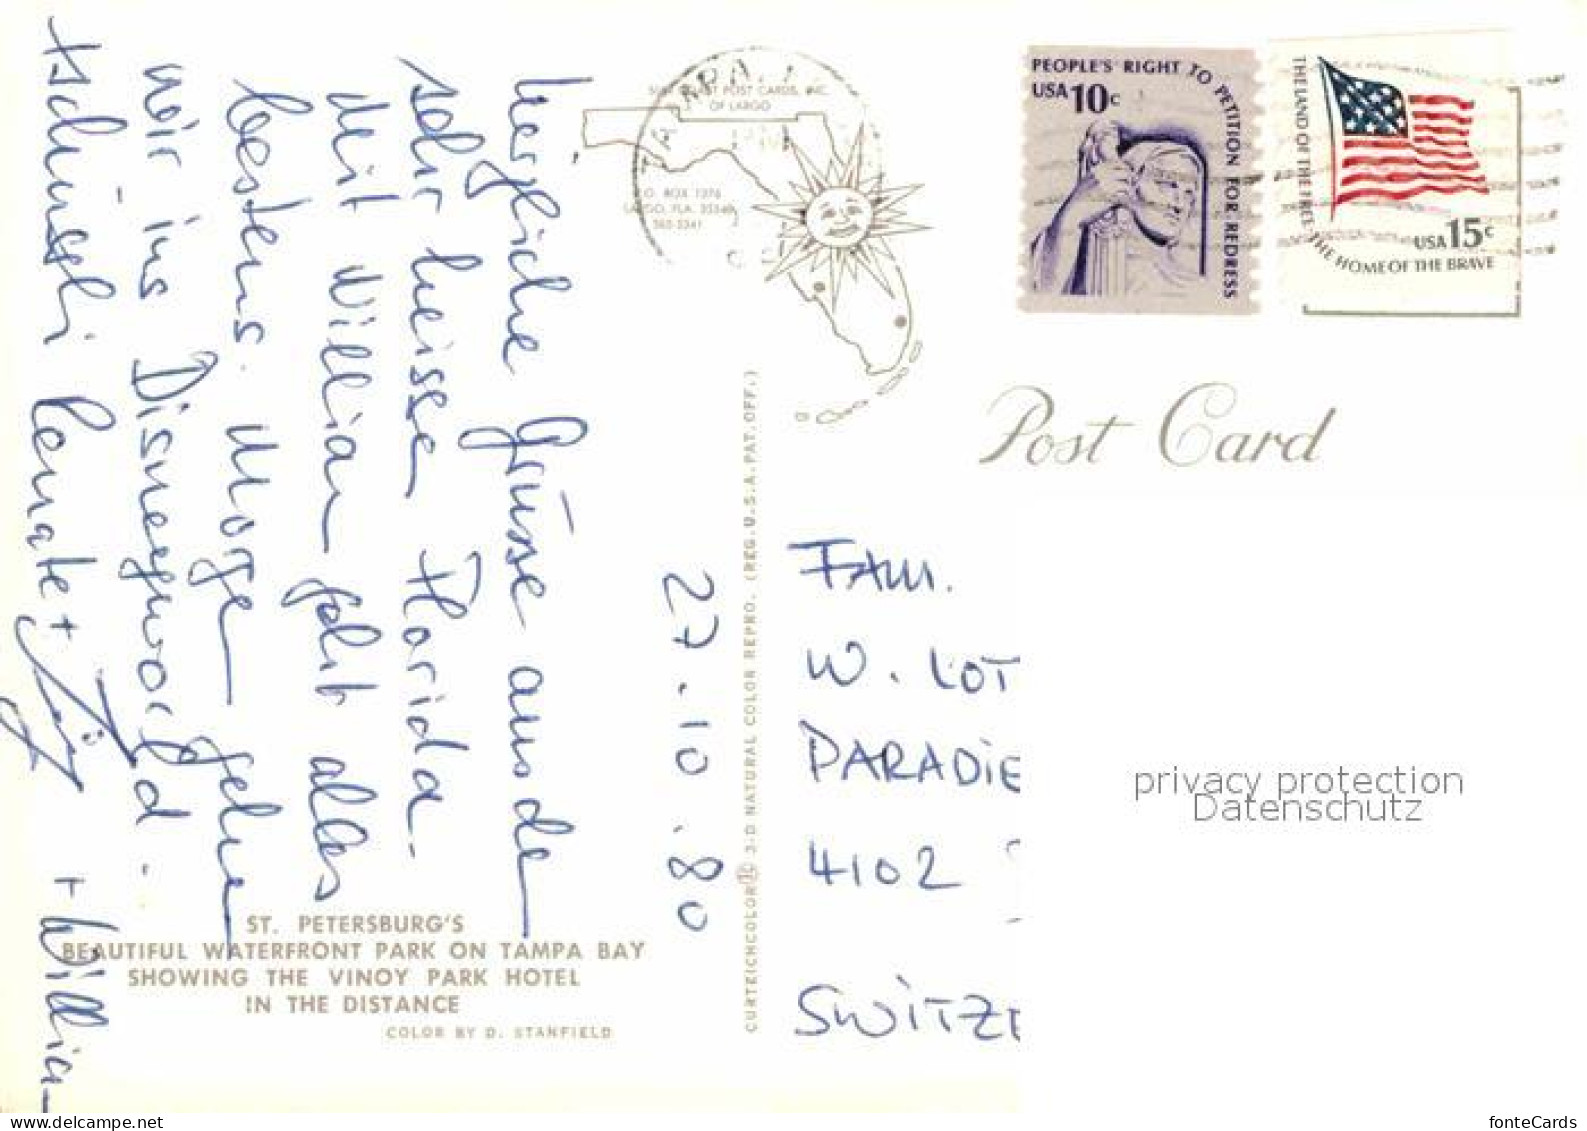 27.10.80
Herzliche Grüsse aus de
sehr heisse Florida-
Mit William geht alles
bestens. Morge gehe
wir ins Disneyworld.
tschüssli Renate +
+ William
ST. PETERSBURG'S
BEAUTIFUL WATERFRONT PARK ON TAMPA BAY
SHOWING THE VINOY PARK HOTEL
IN THE DISTANCE
COLOR BY D. STANFIELD
CURTEICHCOLOR 3-D NATURAL COLOR REPRO. (REG. U.S.A. PAT. OFF.)
POST CARDS, INC.
OF LARGO
P.O. BOX 1376
LARGO, FLA.
TAMPA
PEOPLE'S RIGHT TO PETITION FOR REDRESS
USA 10c
THE LAND OF THE FREE THE HOME OF THE BRAVE
USA 15c
Post Card
FAM.
W. LOT
PARADIE
4102
SWITZE
privacy protection
Datenschutz
fonteCards